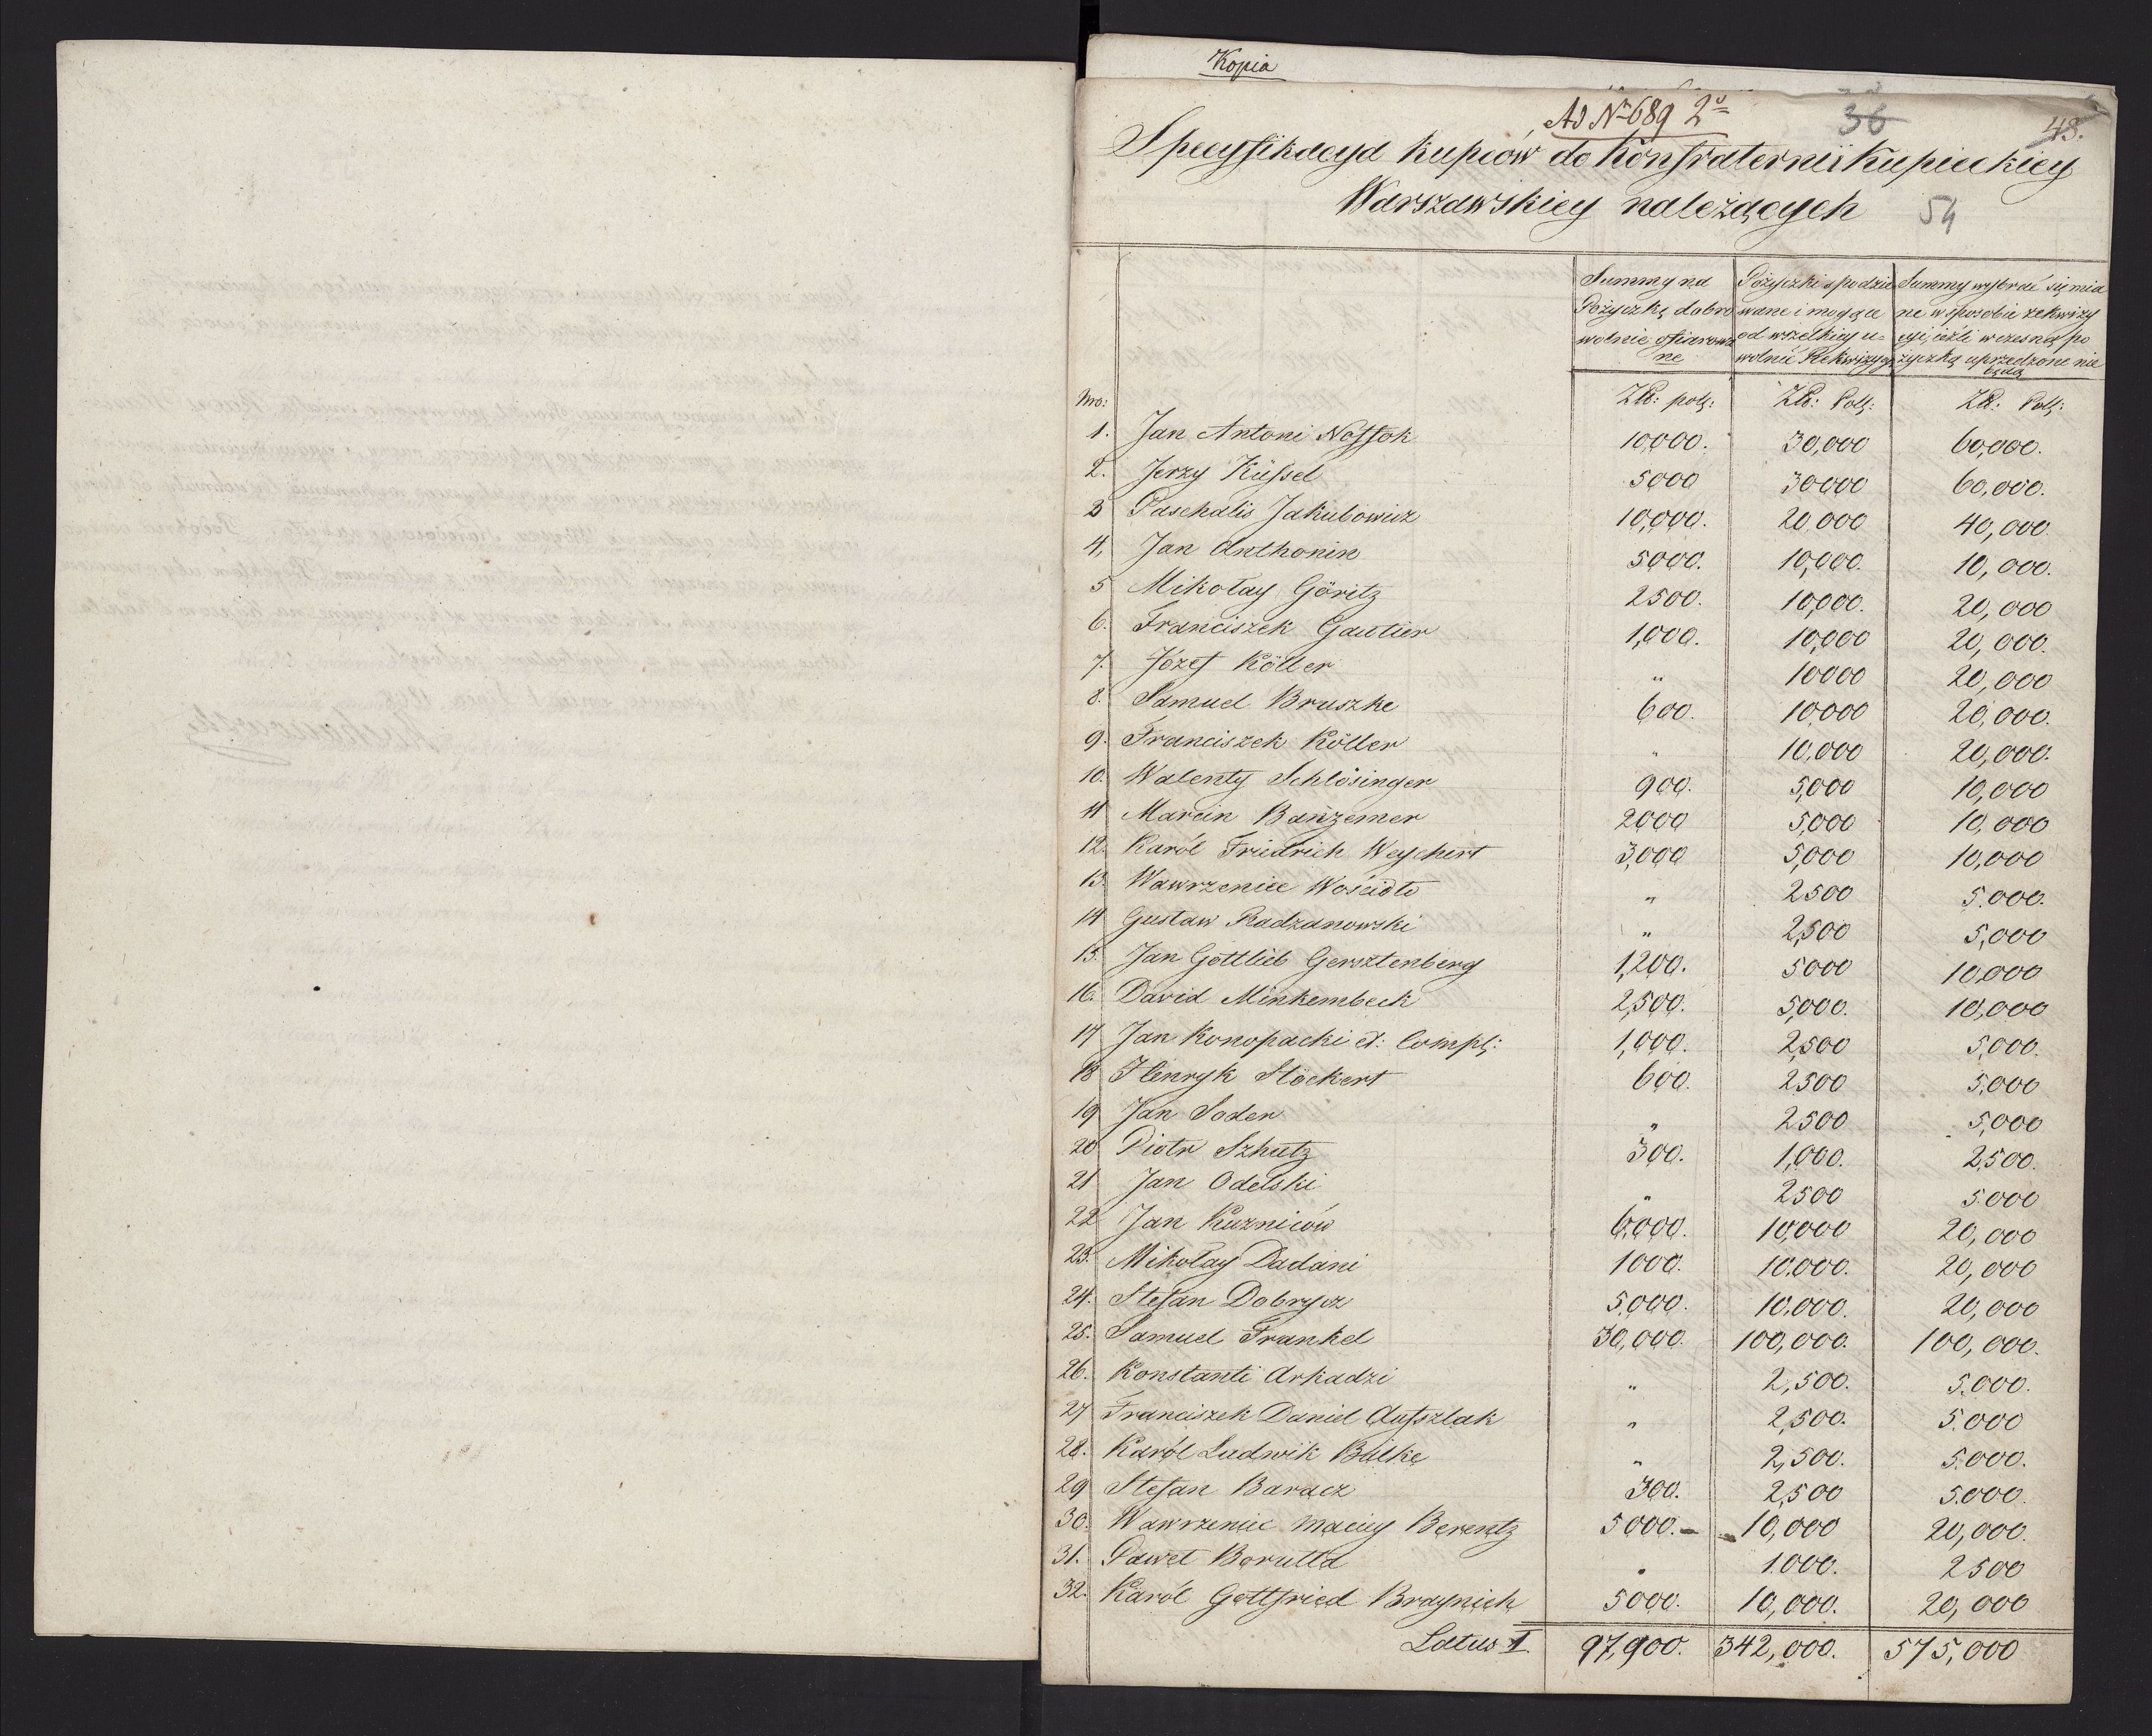 Kopia
Ad Nr 689 2
36
48.
Specyfikacya kupców do Konfraternii Kupieckiey
Warszawskiey należących
54
Summy na Pożyczkę dobro wolnie ofiarowa ne
Pożyczki spodzie wane i mogące od wszelkiey u= wolnić Rekwizycyi
Summy wybrać się mia ne w sposobie rekwizy cyi, ieźli wczesną po życzką uprzedzone nie będą
Nro: Złt: pols: Złt: Pols: Złt: Pols:
1. Jan Antoni Nossok 10,000. 30,000 60,000.
2. Jerzy Küssel 5000 30000 60,000.
3 Paschalis Jakubowicz 10,000. 20,000 40,000.
4. Jan Anthonin 5000. 10,000. 10,000.
5 Mikołay Göritz 2500. 10,000. 20,000
6. Franciszek Gautier 1,000. 10,000 20,000.
7. Józef Köller " 10000 20,000
8. Samuel Bruszke 600. 10000 20,000.
9. Franciszek Köller " 10,000 20,000.
10. Walenty Schlösinger 900. 5,000 10,000
11 Marcin Banzemer 2000 5,000 10,000
12. Karól Friedrich Weychert 3,000 5,000 10,000
13. Wawrzeniec Wościdło " 2500 5.000.
14 Gustaw Radzanowski " 2,500 5,000
15. Jan Gottlieb Gersztenberg 1,200. 5000 10,000
16. David Minkembeck 2,500. 5,000. 10,000
17 Jan Konopacki et: Comp: 1,000. 2,500 5,000.
18 Henryk Stöckert 600. 2500 5,000
19 Jan Soder " 2500 5,000
20 Piotr Szhutz 300. 1,000. 2,500.
21 Jan Odelski " 2500 5000
22 Jan Kuzniców 6,000. 10,000 20,000
23. Mikołay Dadani 1000. 10,000. 20,000
24. Stefan Dobrycz 5,000. 10.000. 20,000
25. Samuel Frankel 30,000. 100,000. 100,000.
26. Konstanti Arkadzi " 2,500. 5,000.
27 Franciszek Daniel Aufszlak " 2,500. 5.000
28. Karól Ludwik Bálke " 2,500. 5.000.
29 Stefan Baracz 300. 2,500 5.000.
30. Wawrzeniec Maciey Berentz 5000. 10,000 20,000.
31. Paweł Borutta " 1.000. 2500
32. Karól Gottfried Braynich 5000. 10,000. 20,000
Latus I. 97,900. 342,000. 575,000